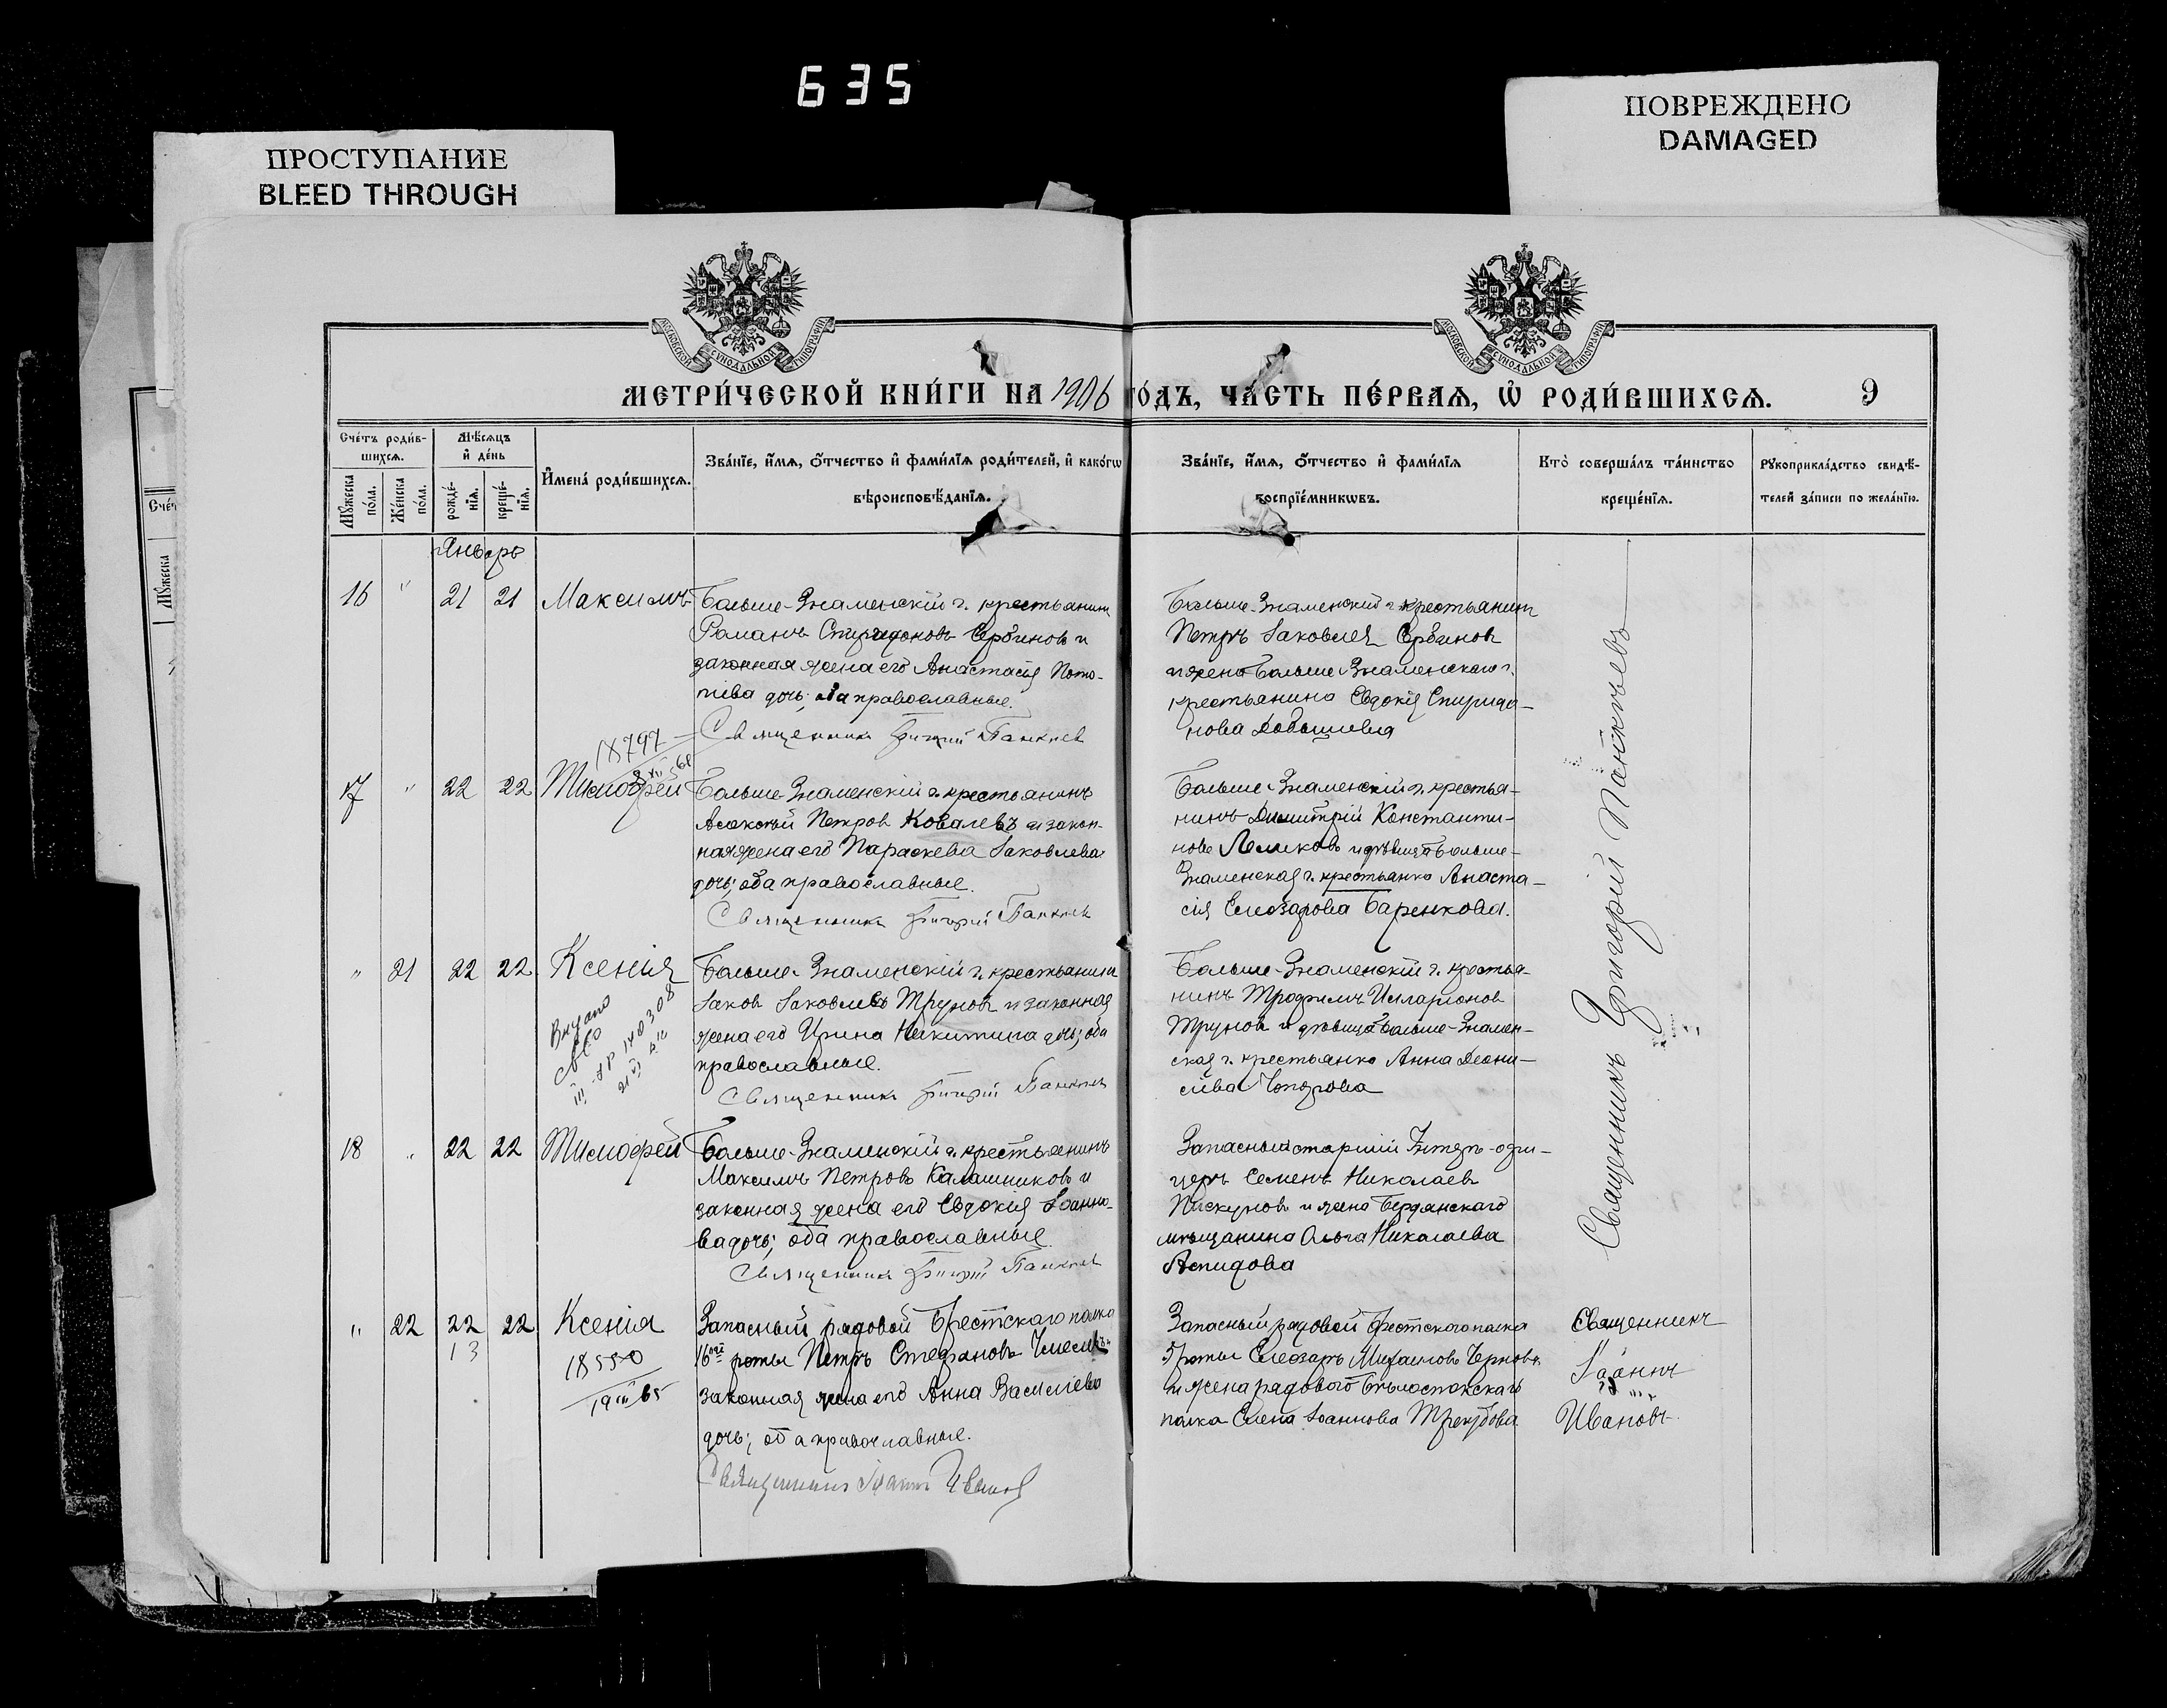 635
ПРОСТУПАНИЕ
BLEED THROUGH
ПОВРЕЖДЕНО
DAMAGED
МОСКОВСКОЙ СѴНОДАЛЬНОЙ ТИПОГРАФІИ
МОСКОВСКОЙ СѴНОДАЛЬНОЙ ТИПОГРАФІИ
МЕТРИ́ЧЕСКОЙ КНИ́ГИ НА 1906 ГО́ДЪ, ЧА́СТЬ ПЕ́РВАѦ, Ѡ҆ РОДИ́ВШИХСѦ. 9
Сче́тъ роди́в-
шихсѧ.
Мꙋ́жеска по́ла.
Же́нска по́ла.
Мѣ́сѧцъ
и҆ де́нь
рожде́-
нїѧ.
креще́-
нїѧ.
И҆мена̀ роди́вшихсѧ.
Зва́нїе, и҆́мѧ, ѻ҆́тчество и҆ фами́лїѧ роди́телей, и҆ како́гѡ
вѣроисповѣ́данїѧ.
Зва́нїе, и҆́мѧ, ѻ҆́тчество и҆ фами́лїѧ
воспрїе́мникѡвъ.
Кто̀ соверша́лъ та́инство
креще́нїѧ.
Рꙋкоприкла́дство свидѣ́-
телей за́писи по жела́нїю.
Январь
16 " 21 21 Максимъ
Больше-Знаменскій г. крестьянинъ
Романъ Спиридоновъ Сербиновъ и
законная жена его Анастасія Пота-
піева дочь; оба православные.
Священникъ Григорій Панкѣев
Больше-Знаменскій г. крестьянинъ
Петръ Іаковлев Сербинов
и жена Больше-Знаменскаго г.
крестьянина Евдокія Спиридо-
нова
18797
17 " 22 22 Тимофей
Больше-Знаменскій г. крестьянинъ
Алексѣй Петров Ковалевъ и закон-
ная жена его Параскева Іаковлева
дочь; оба православные.
Священникъ Григорій Панкѣев
Больше-Знаменскій г. крестья-
нинъ Димитрій Константи-
нов и дѣвица Больше-
Знаменская г. крестьянка Анаста-
сія Елеазарова Баренкова.
" 21 22 22 Ксенія
Выдано
Больше-Знаменскій г. крестьянинъ
Іаков Іаковлевъ Трунов и законная
жена его Ирина Никитина дочь; оба
православные.
Священникъ Григорій Панкѣев
Больше-Знаменскій г. крестья-
нинъ Трофимъ Илларионов
Трунов и дѣвица Больше-Знамен-
ская г. крестьянка Анна Діони-
сіева
18 " 22 22 Тимофей
Больше-Знаменскій г. крестьянинъ
Максимъ Петровъ Калашниковъ и
законная жена его Евдокія Іоанно-
ва дочь; оба православные
Священникъ Григорій Панкѣев
Запасный старшій Унтеръ-офи-
церъ Семенъ Николаев
Пискунов и жена Бердянскаго
мѣщанина Ольга Николаева
Аспидова
Священникъ Григорій Панкѣевъ
" 22 22 22 Ксенія
13
18550
19 III 65
Запасный рядовой Брестскаго полка
16ой роты Петръ Стефановъ
законная жена его Анна Василіева
дочь; оба православные.
Священникъ Іоаннъ Иванов
Запасный рядовой Брестскаго полка
5 роты Елеазаръ Михаиловъ Чернов
и жена рядового Бѣлостокскаго
полка Елена Іоаннова
Священникъ
Іоаннъ
Ивановъ